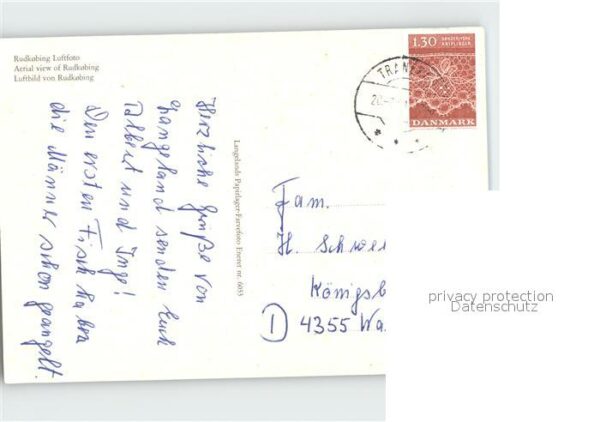 Rudkøbing Luftfoto
Aerial view of Rudkøbing
Luftbild von Rudkøbing
Herzliche Grüße von
Langeland senden Euch
Albert und Inge!
Den ersten Fisch haben
die Männer schon geangelt.
Langelands Papirlager-Farvefoto Eneret nr. 6035
1.30
DANMARK
TRAN
20
Fam.
H. Schroe
Königsb
① 4355 Wa
privacy protection
Datenschutz